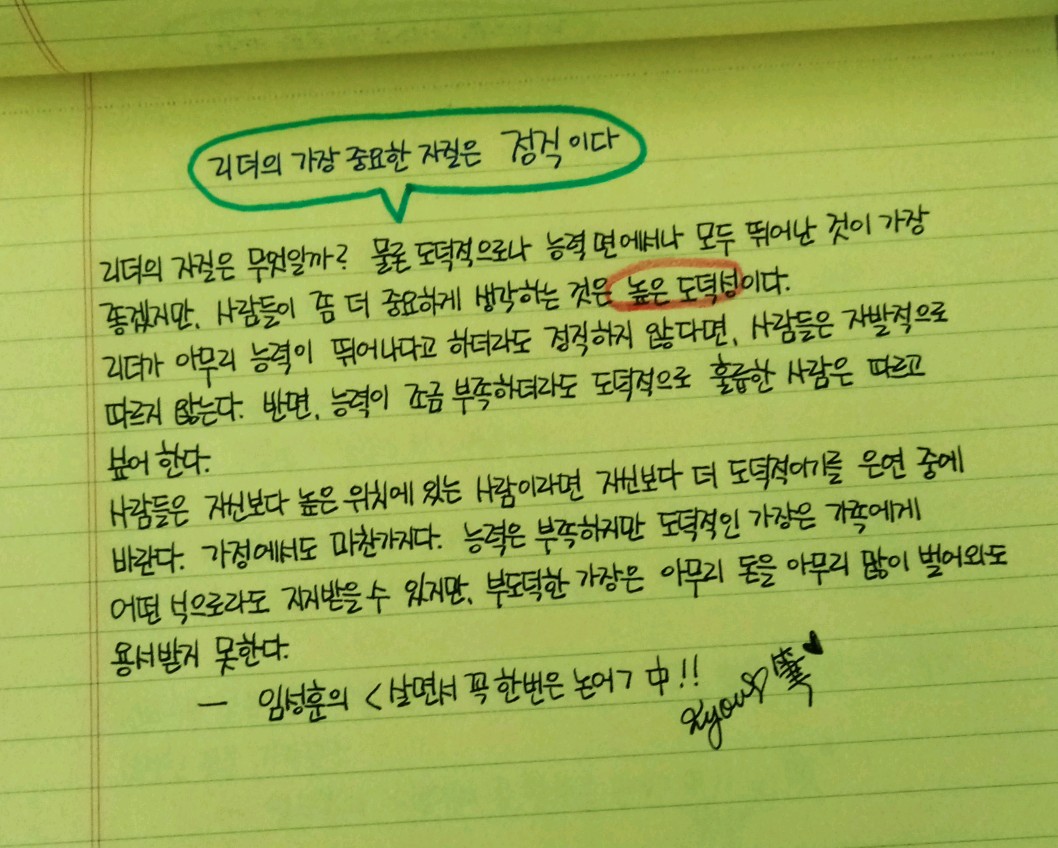 리더의 가장 중요한 자질은 정직이다
리더의 자질은 무엇일까? 물론 도덕적으로나 능력 면에서나 모두 뛰어난 것이 가장
좋겠지만, 사람들이 좀 더 중요하게 생각하는 것은 높은 도덕성이다.
리더가 아무리 능력이 뛰어나다고 하더라도 정직하지 않다면, 사람들은 자발적으로
따르지 않는다. 반면, 능력이 조금 부족하더라도 도덕적으로 훌륭한 사람은 따르고
싶어 한다.
사람들은 자신보다 높은 위치에 있는 사람이라면 자신보다 더 도덕적이기를 은연 중에
바란다. 가정에서도 마찬가지다. 능력은 부족하지만 도덕적인 가장은 가족에게
어떤 식으로라도 지지받을 수 있지만, 부도덕한 가장은 아무리 돈을 아무리 많이 벌어와도
용서받지 못한다.
- 임성훈의 <살면서 꼭 한번은 논어> 中!!